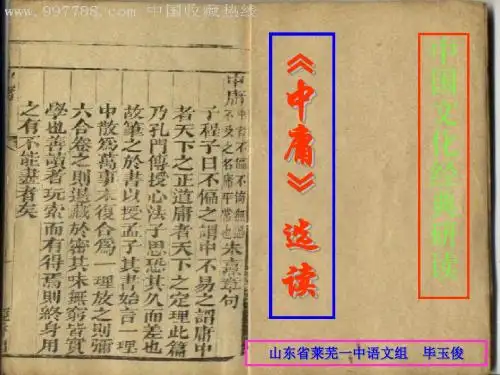 www.997788.com 中国收藏热线
中国文化经典研读
《中庸》选读
中庸
中者不偏不倚無過
不及之名庸平常也
朱熹章句
子程子曰不偏之謂中不易之謂庸中
者天下之正道庸者天下之定理此篇
乃孔門傳授心法子思恐其久而差也
故筆之於書以授孟子其書始言一理
中散爲萬事末復合爲 理放之則彌
六合卷之則退藏於密其味無窮皆實
學也善讀者玩索而有得焉則終身用
之有不能盡者矣
山东省莱芜一中语文组 毕玉俊